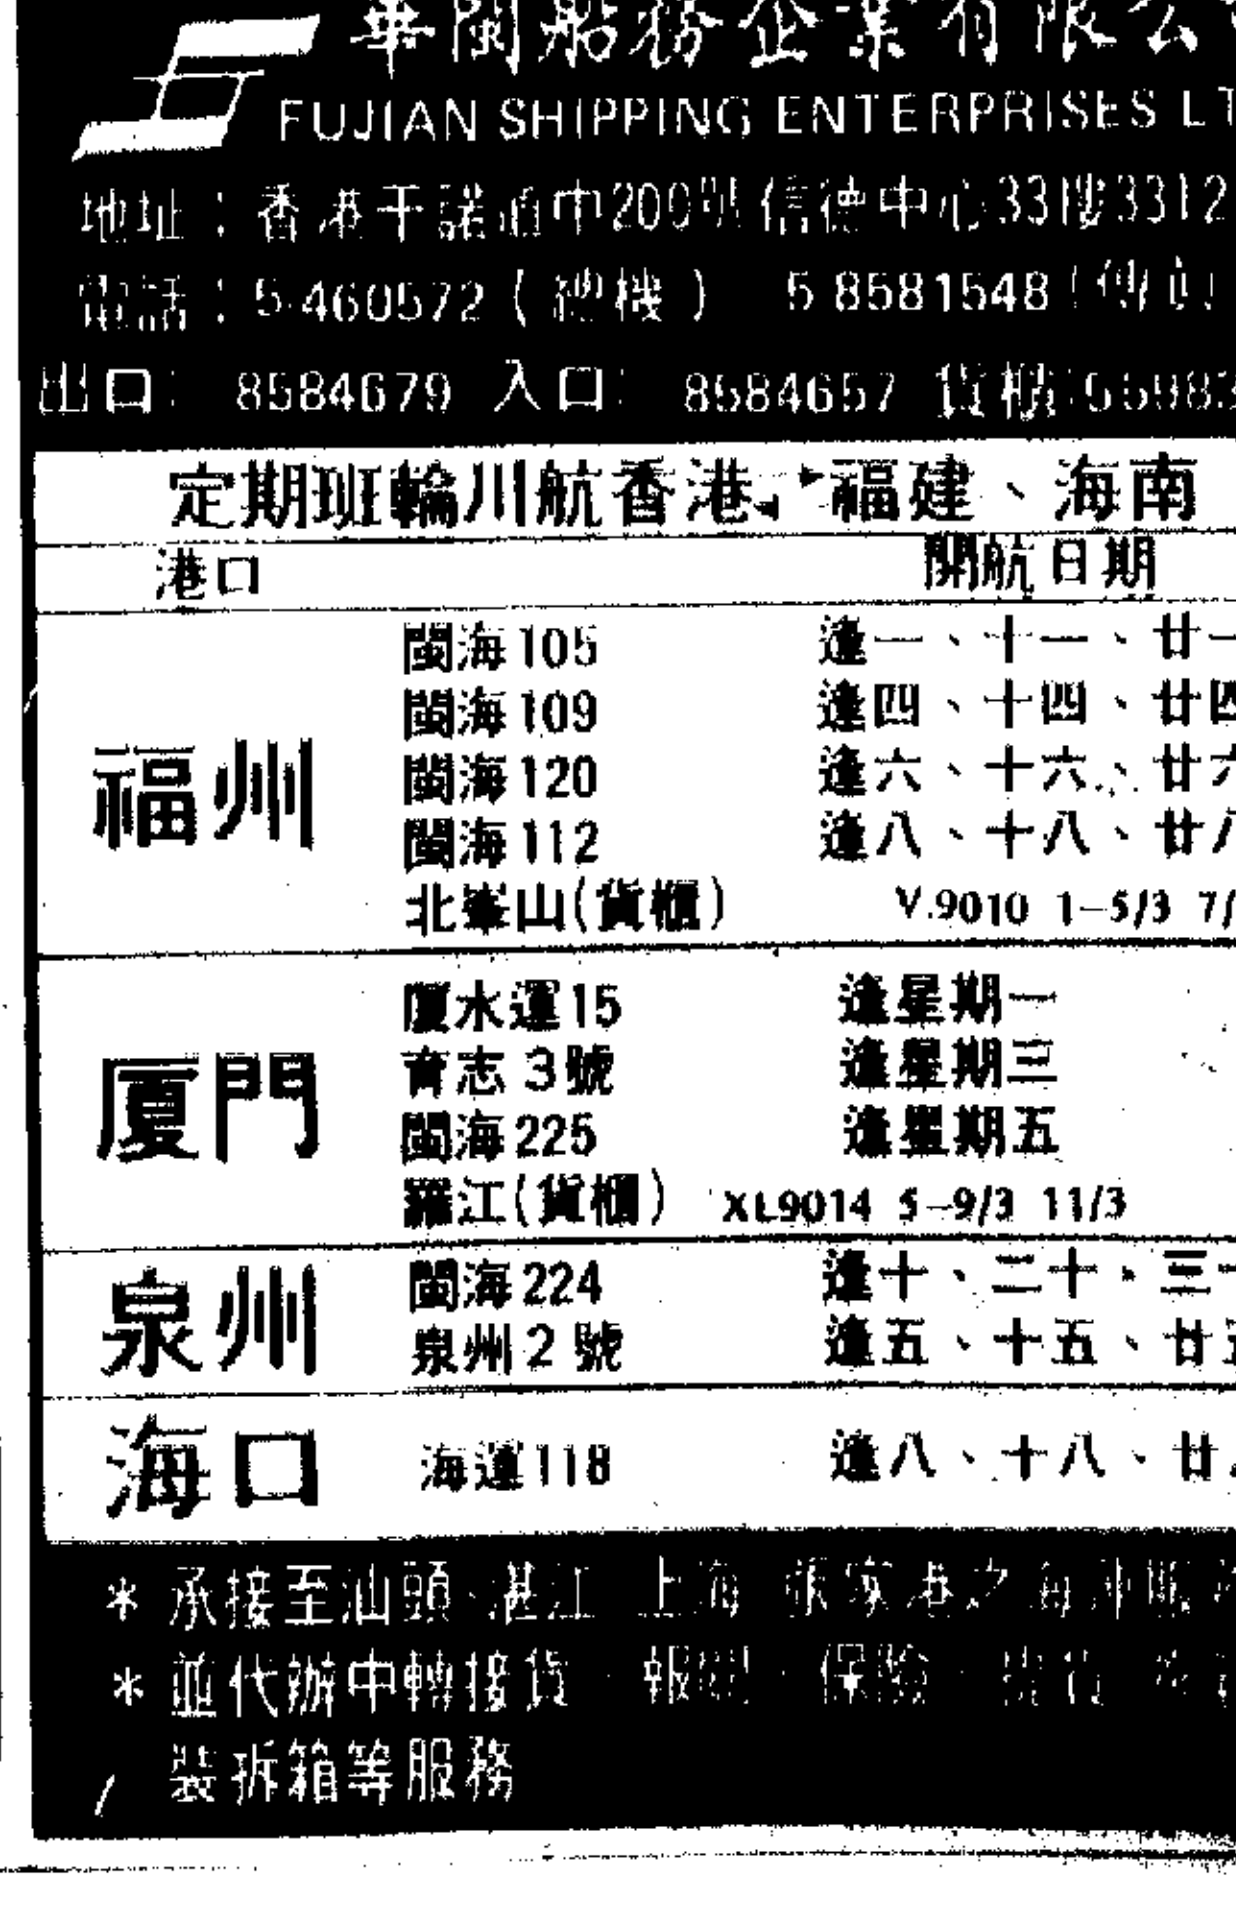 華閩船務企業有限公
FUJIAN SHIPPING ENTERPRISES LT
地址：香港干諾道中200號信德中心33樓3312
電話：5-460572（總機） 5 8581548（傳真
出口： 8584679 入口： 8584657 貨櫃：
定期班輪川航香港 福建、海南
港口 開航日期
福州
閩海105 逢一、十一、廿一
閩海109 逢四、十四、廿四
閩海120 逢六、十六、廿六
閩海112 逢八、十八、廿八
北峯山(貨櫃) V.9010 1–5/3 7/
廈門
廈水運15 逢星期一
育志3號 逢星期三
閩海225 逢星期五
羅江(貨櫃) XL9014 5–9/3 11/3
泉州
閩海224 逢十、二十、三十
泉州2號 逢五、十五、廿五
海口
海運118 逢八、十八、廿八
* 承接至汕頭、湛江 上海 張家港之海
* 並代辦中轉接貨 報關 保險
裝拆箱等服務